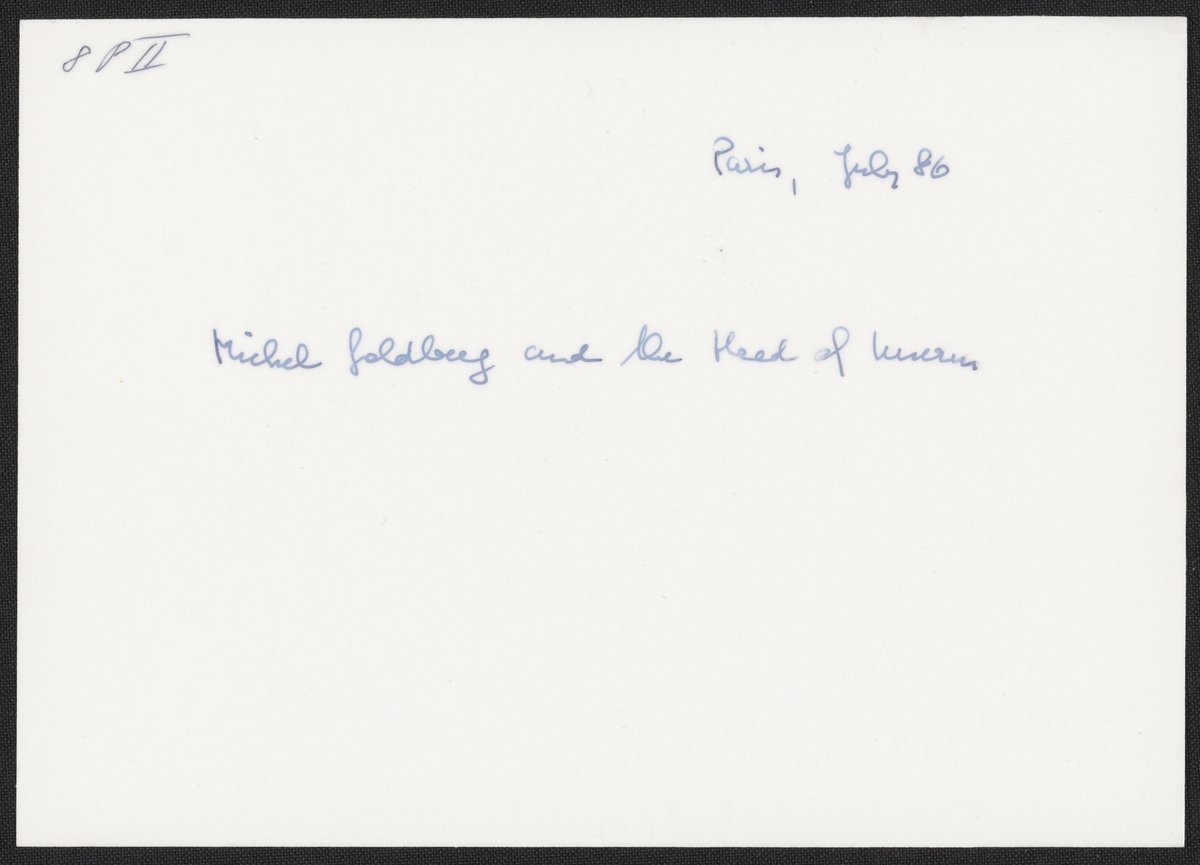 8 P II
Paris, July 86
Michel Goldberg and the Head of Inserm